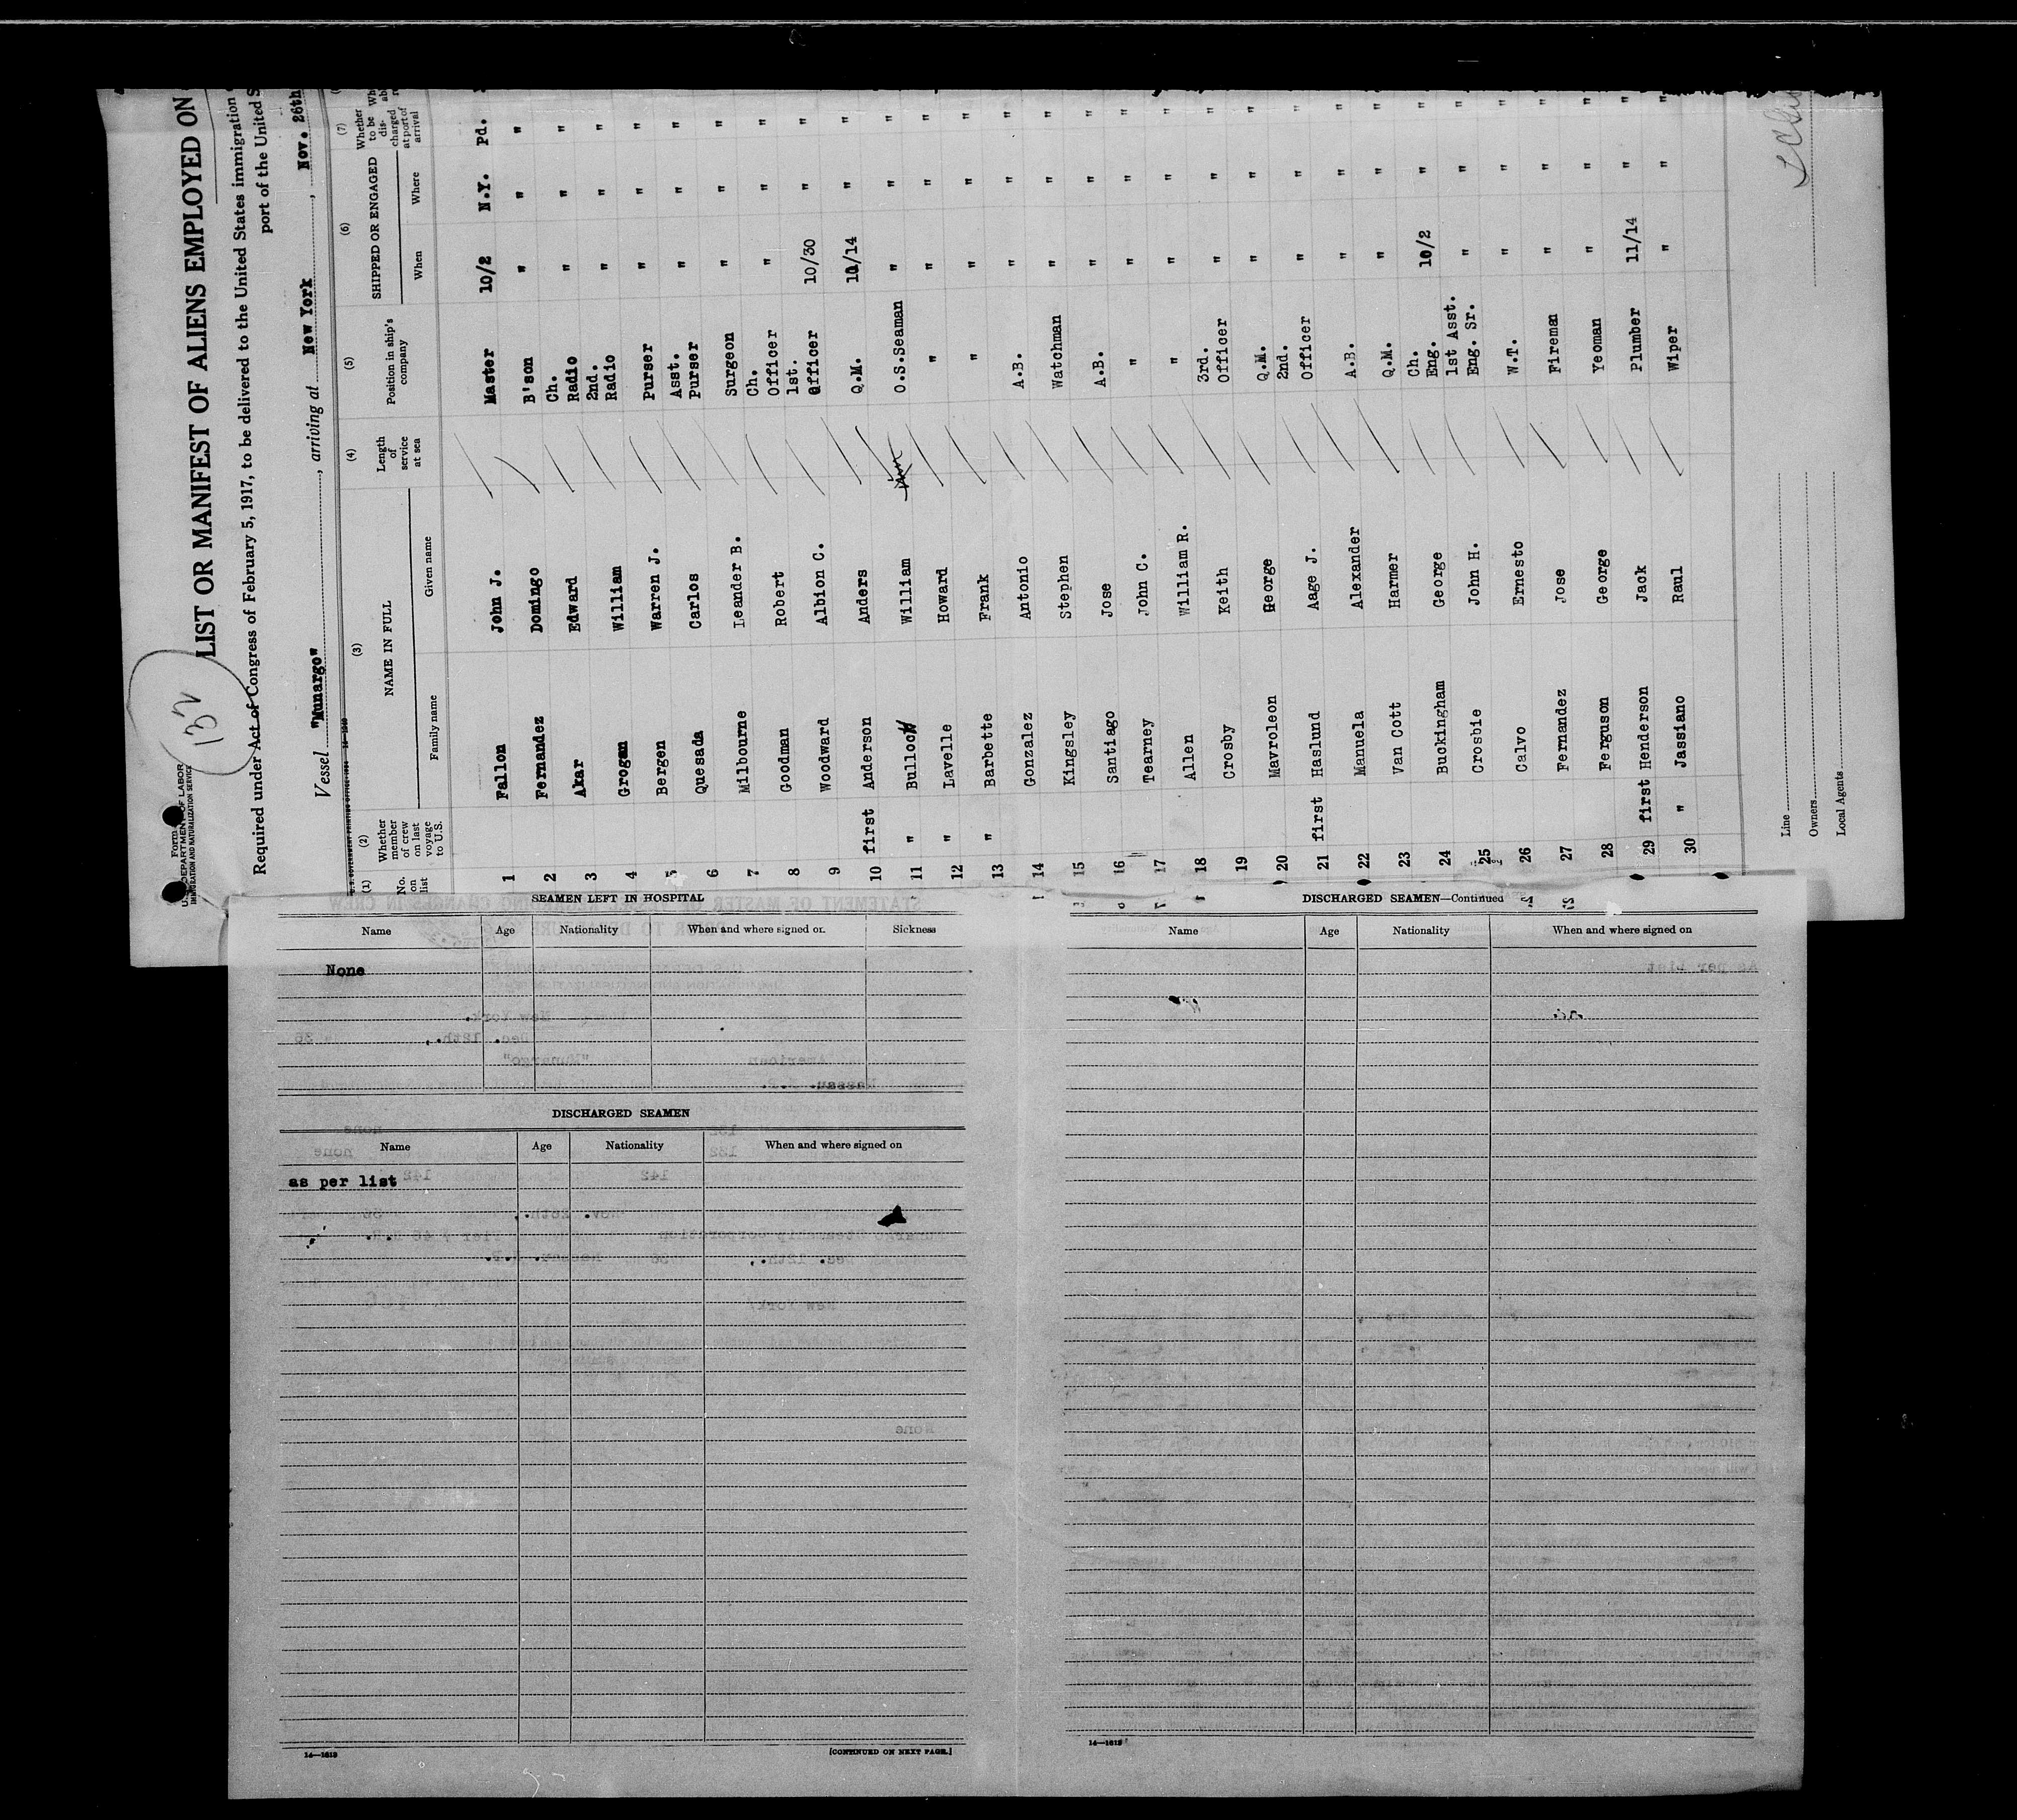 132
Form
U.S. DEPARTMENT OF LABOR
IMMIGRATION AND NATURALIZATION SERVICE
LIST OR MANIFEST OF ALIENS EMPLOYED ON
Required under Act of Congress of February 5, 1917, to be delivered to the United States immigration
port of the United S
Vessel "Munargo", arriving at New York, Nov. 26th
(1) (2) (3) (4) (5) (6) (7)
No. on list
Whether member of crew on last voyage to U.S.
NAME IN FULL
Family name Given name
Length of service at sea
Position in ship's company
SHIPPED OR ENGAGED
When Where
Whether to be discharged at port of arrival
1 Fallon John J. Master 10/2 N.Y. Pd.
2 Fernandez Domingo B'son " " "
3 Akar Edward Ch. Radio " " "
4 Grogan William 2nd. Radio " " "
5 Bergen Warren J. Purser " " "
6 Quesada Carlos Asst. Purser " " "
7 Milbourne Leander B. Surgeon " " "
8 Goodman Robert Ch. Officer " " "
9 Woodward Albion C. 1st. Officer 10/30 " "
10 first Anderson Anders Q.M. 10/14 " "
11 " Bullock William O.S.Seaman " " "
12 " Lavelle Howard " " " "
13 " Barbette Frank " " " "
14 Gonzalez Antonio A.B. " " "
15 Kingsley Stephen Watchman " " "
16 Santiago Jose A.B. " " "
17 Tearney John C. " " " "
18 Allen William R. " " " "
19 Crosby Keith 3rd. Officer " " "
20 Mavroleon George Q.M. " " "
21 first Haslund Aage J. 2nd. Officer " " "
22 Manuela Alexander A.B. " " "
23 Van Cott Harmer Q.M. " " "
24 Buckingham George Ch. Eng. 10/2 " "
25 Crosbie John H. 1st Asst. Eng. Sr. " " "
26 Calvo Ernesto W.T. " " "
27 Fernandez Jose Fireman " " "
28 Ferguson George Yeoman " " "
29 first Henderson Jack Plumber 11/14 " "
30 " Jassiano Raul Wiper " " "
Line
Owners
Local Agents
SEAMEN LEFT IN HOSPITAL
Name Age Nationality When and where signed on Sickness
None
DISCHARGED SEAMEN
Name Age Nationality When and where signed on
as per list
14—1613
[CONTINUED ON NEXT PAGE.]
DISCHARGED SEAMEN—Continued
Name Age Nationality When and where signed on
14—1613